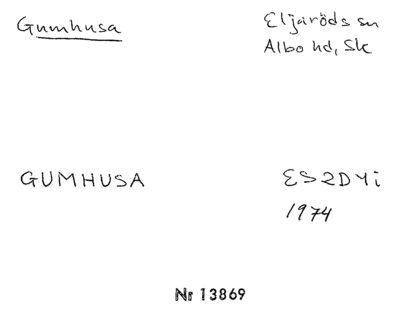 Gumhusa
Eljaröds sn
Albo hd, Sk
GUMHUSA
ES2D4i
1974
Nr 13869